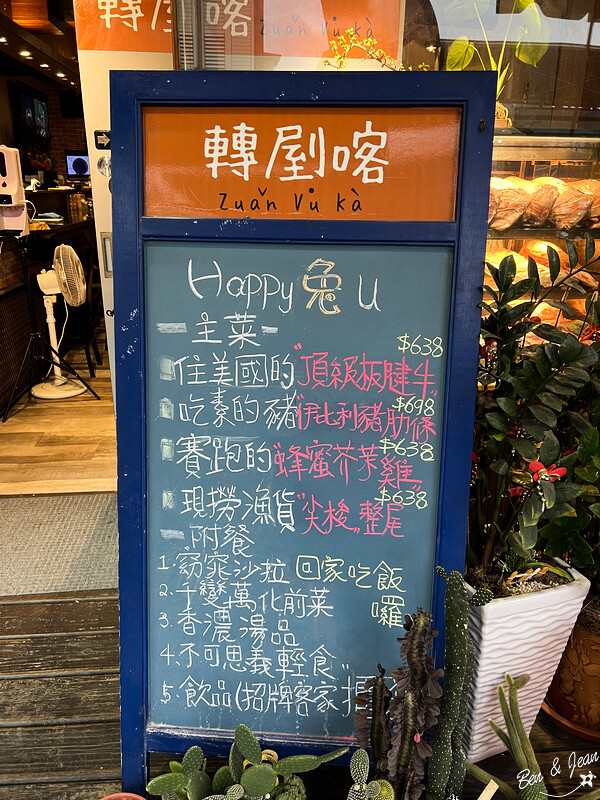 轉屋
Zuǎn Vù kà
轉屋喀
Zuǎn Vů kà
Happy 兔 U
一主菜一
住美國的"頂級板腱牛" $638
吃素的豬"伊比利豬肋條" $698
賽跑的"蜂蜜芥茉雞" $638
現撈漁貨"尖梭"整尾 $638
一附餐
1. 窈窕沙拉
回家吃飯囉
2. 千變萬化前菜
3. 香濃湯品
4. 不可思議輕食"
5. 飲品(招牌客家
Ben & Jean